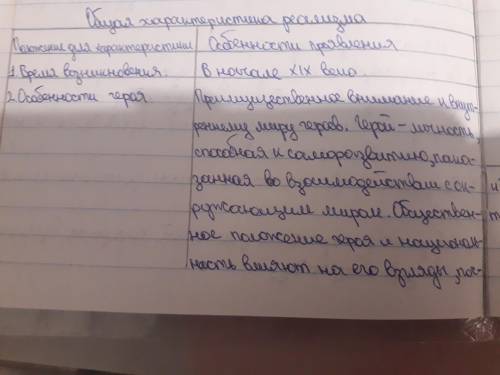 Общая характеристика реализма
Положение для характеристики Особенности проявления
1. Время возникновения. В начале XIX века
2. Особенности героя Преимущественное внимание к внут-
реннему миру героев. Герой - личность,
способная к саморазвитию, пока-
занная во взаимодействии с ок-
ружающим миром. Обществен-
ное положение героя и националь-
ность влияют на его взгляды, пос-